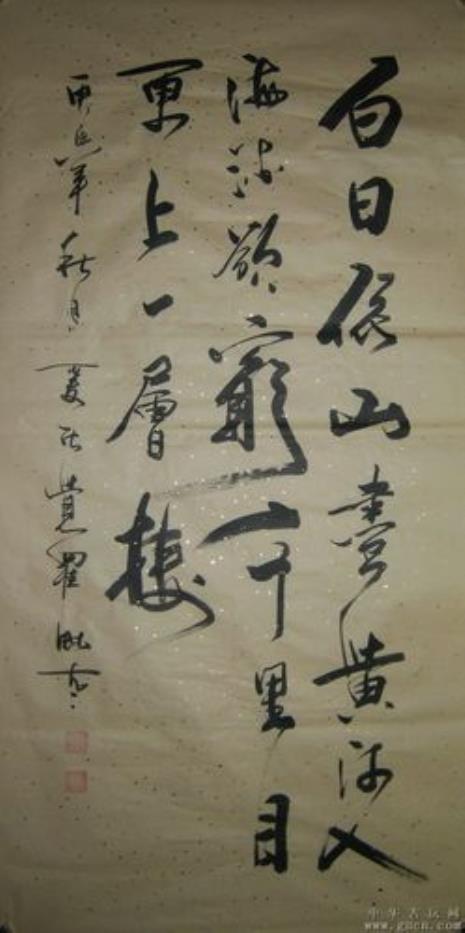 白日依山盡黃河入
海流欲窮千里目
更上一層樓
年秋月
中华古玩网
www.gucn.com